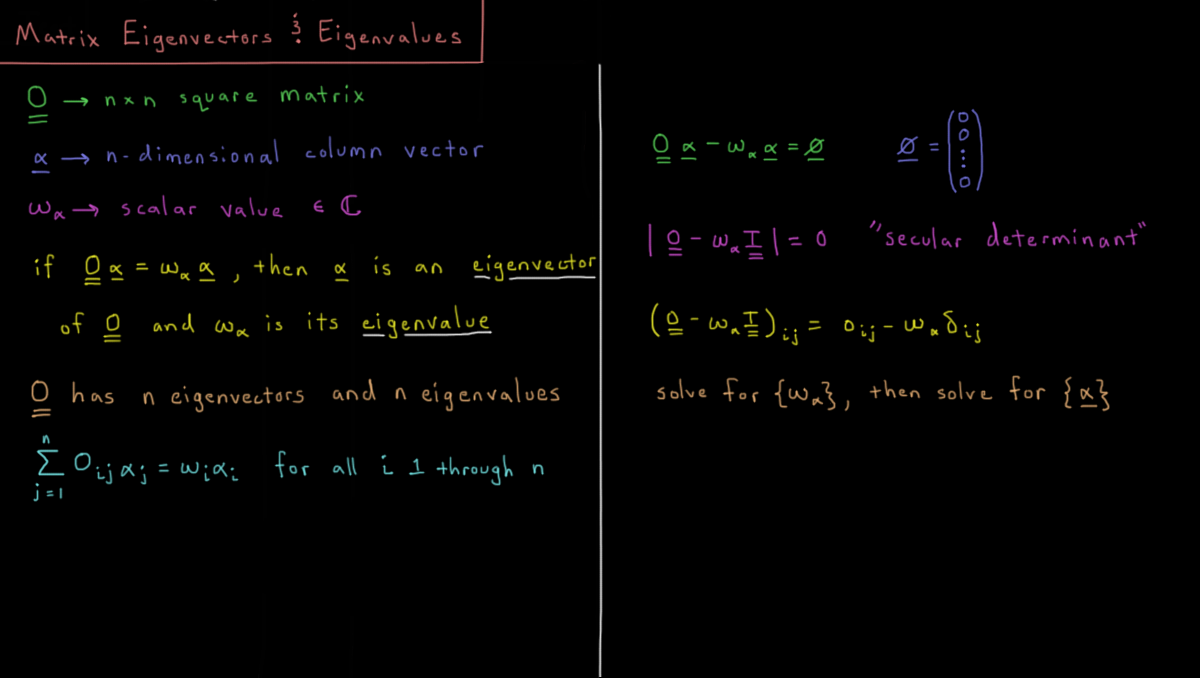 Matrix Eigenvectors & Eigenvalues
O → n×n square matrix
α → n-dimensional column vector
ω_α → scalar value ∈ ℂ
if O α = ω_α α, then α is an eigenvector
of O and ω_α is its eigenvalue
O has n eigenvectors and n eigenvalues
n
Σ O_ij α_j = ω_i α_i for all i 1 through n
j=1
O α - ω_α α = ∅ ∅ = (0 0 ⋮ 0)
|O - ω_α I| = 0 "secular determinant"
(O - ω_α I)_ij = O_ij - ω_α δ_ij
solve for {ω_α}, then solve for {α}